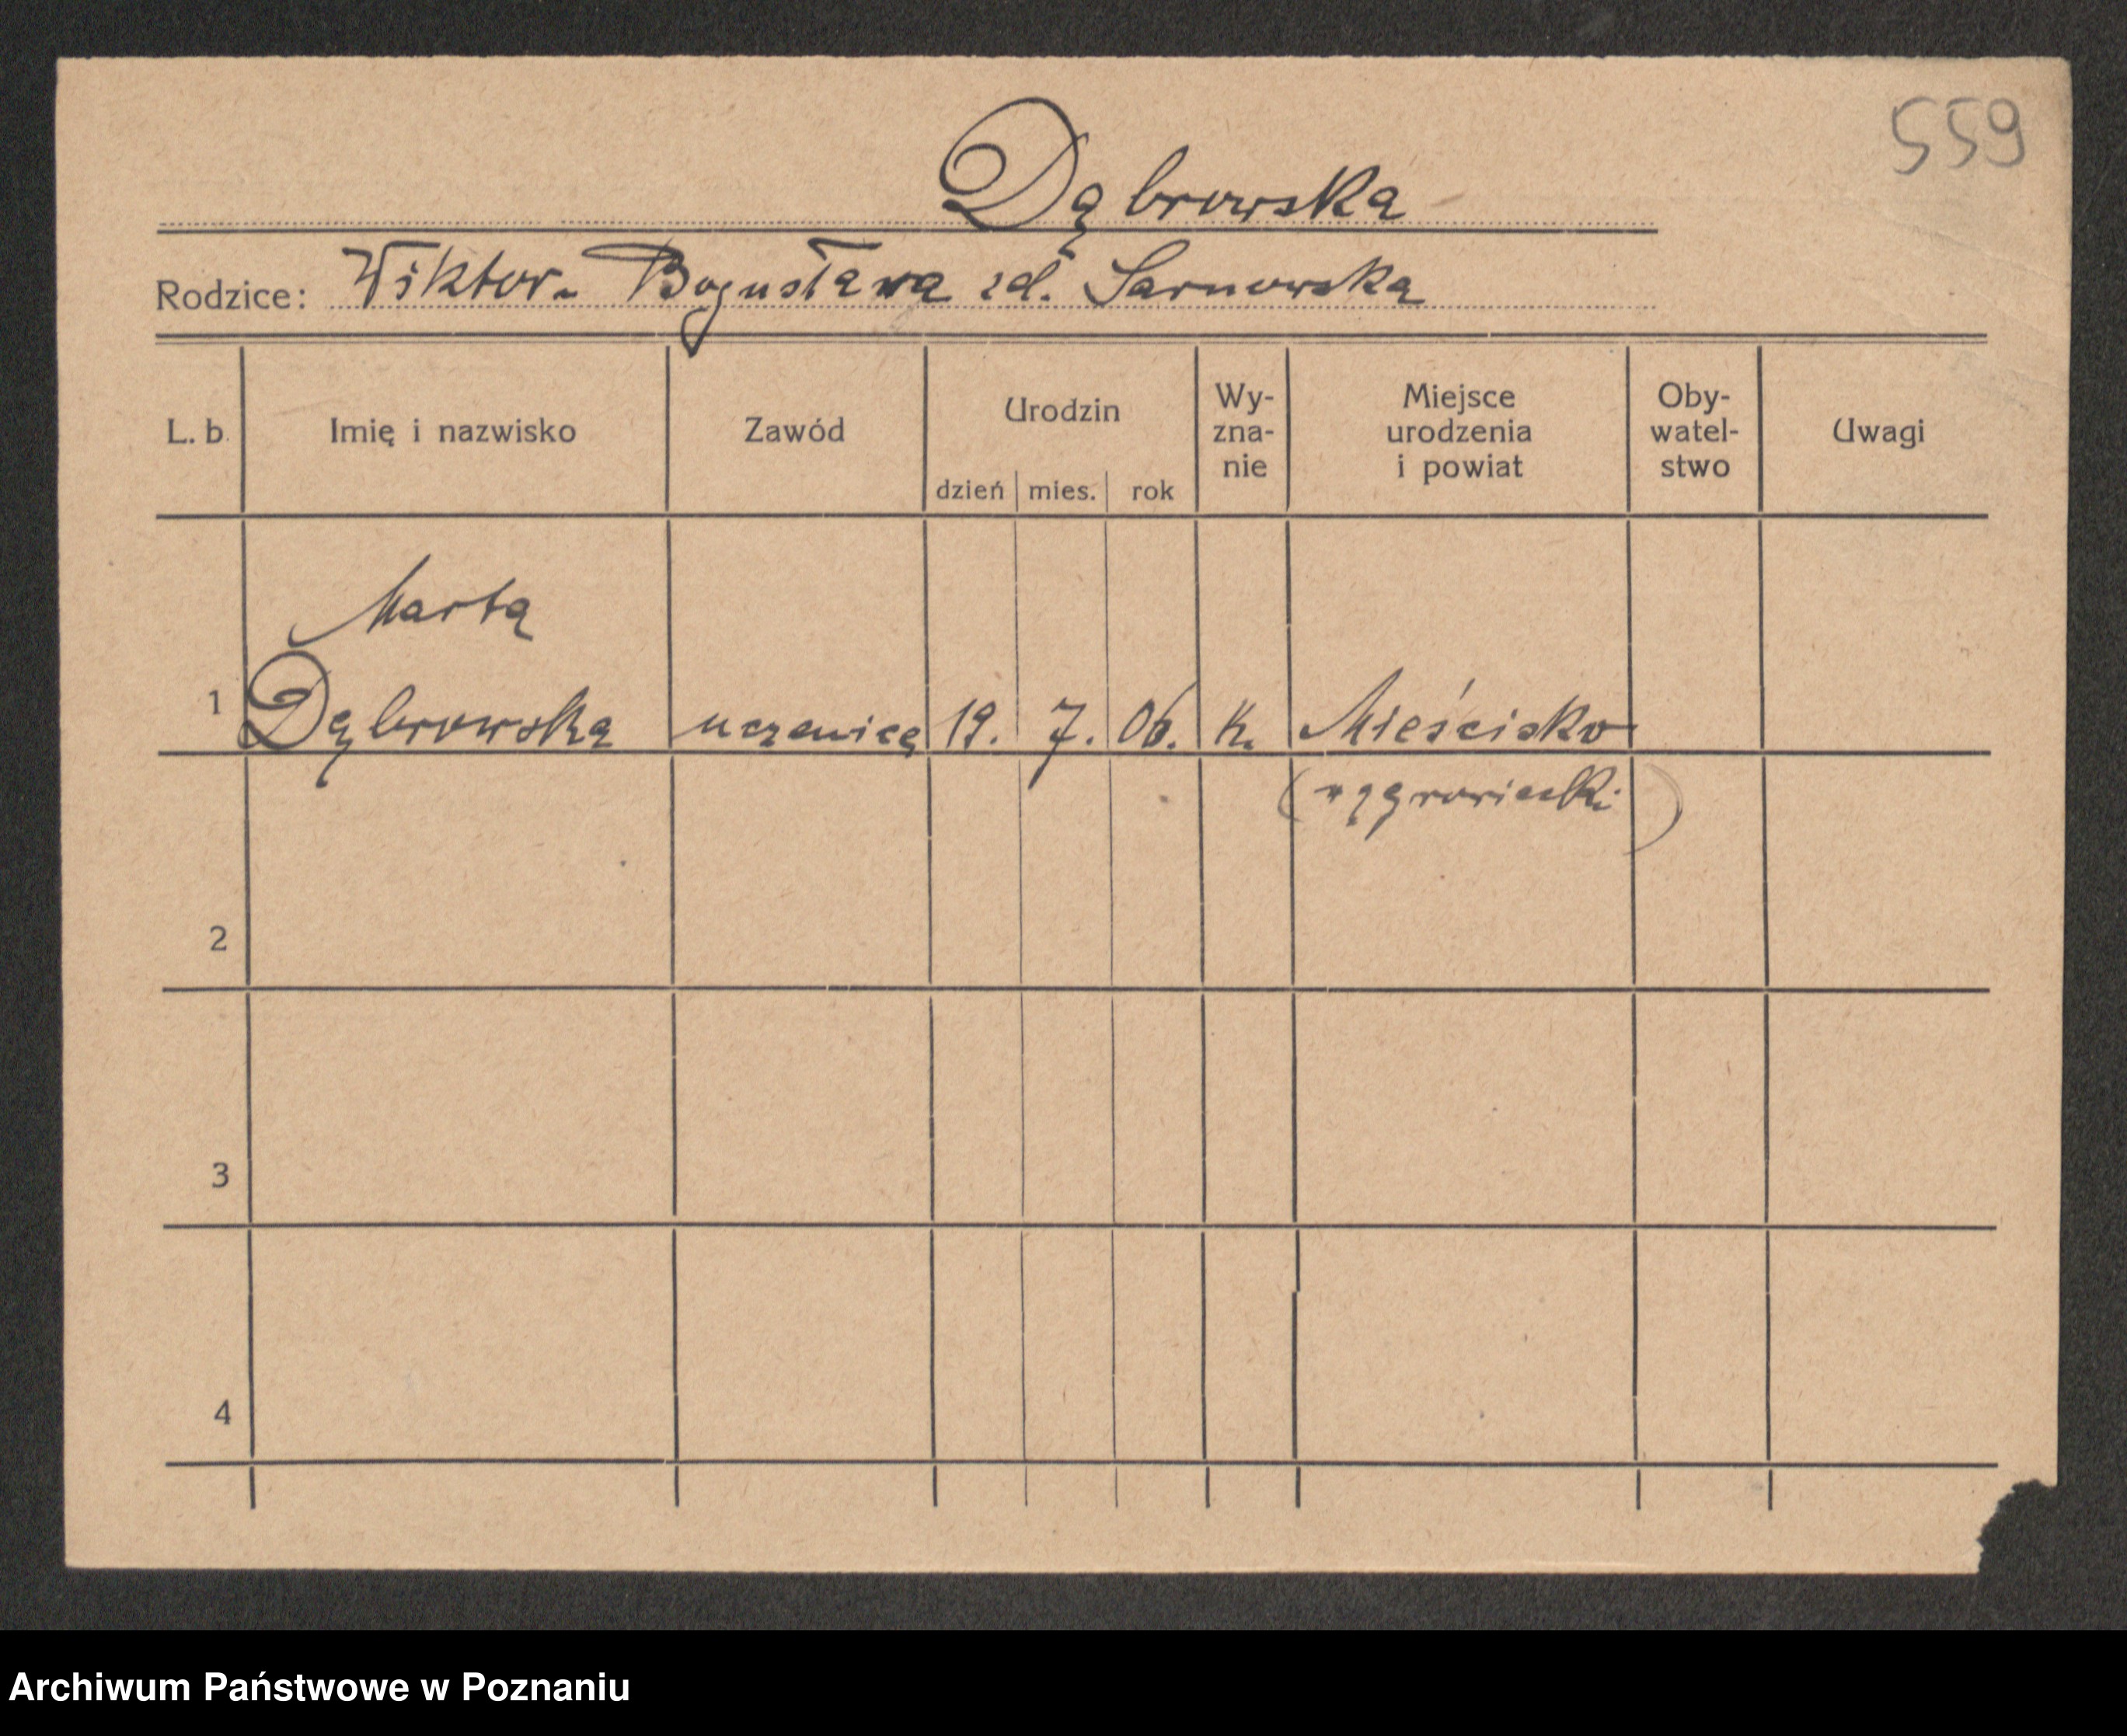 559
Dąbrowska
Rodzice: Wiktor - Bogusława zd. Sarnowska
L. b. Imię i nazwisko Zawód Urodzin Wy- zna- nie Miejsce urodzenia i powiat Oby- watel- stwo Uwagi
dzień mies. rok
Marta
1 Dąbrowska uczenica 19. 7. 06. K. Mieścisko
(wągrowiecki)
2
3
4
Archiwum Państwowe w Poznaniu